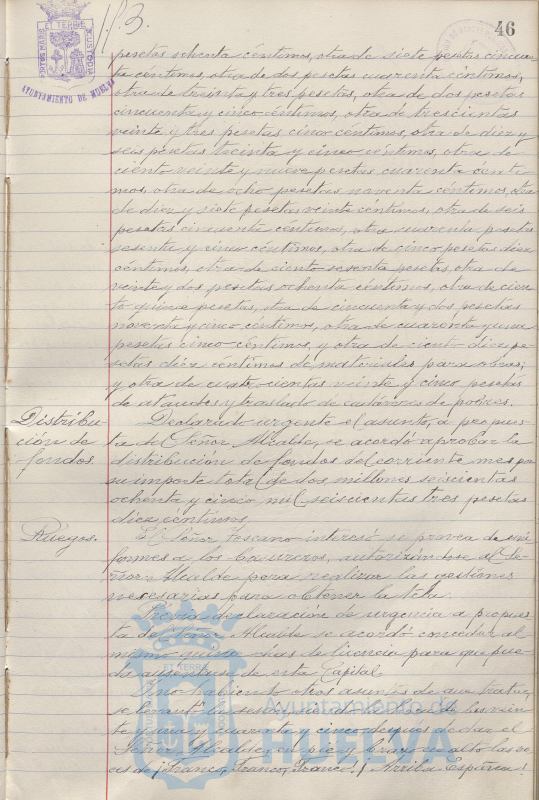 46
AYUNTAMIENTO DE HUELVA
pesetas setenta céntimos, otra de siete pesetas cincuen-
ta céntimos, otra de dos pesetas cuarenta céntimos,
otra de treinta y tres pesetas, otra de dos pesetas
cincuenta y cinco céntimos, otra de trescientas
veinte y tres pesetas cinco céntimos, otra de diez y
seis pesetas treinta y cinco céntimos, otra de
ciento veinte y nueve pesetas cuarenta cénti-
mos, otra de ocho pesetas noventa céntimos, otra
de diez y siete pesetas veinte céntimos, otra de seis
pesetas cincuenta céntimos, otra cuarenta pesetas
sesenta y cinco céntimos, otra de cinco pesetas diez
céntimos, otra de ciento sesenta pesetas, otra de
veinte y dos pesetas ochenta céntimos, otra de cien-
to quince pesetas, otra de cincuenta y dos pesetas
noventa y cinco céntimos, otra de cuarenta y una
pesetas cinco céntimos, y otra de ciento diez pe-
setas diez céntimos de materiales para obras,
y otra de cuatrocientas veinte y cinco pesetas
de ataudes y traslado de cadáveres de pobres.
Distribu-
ción de
fondos.
Declarado urgente el asunto, a propues-
ta del Señor Alcalde, se acordó aprobar la
distribución de fondos del corriente mes por
su importe total de dos millones seiscientas
ochenta y cinco mil seiscientas tres pesetas
diez céntimos.
Ruegos.
El Señor interesó se provea de uni-
formes a los, autorizándose al Se-
ñor Alcalde para realizar las gestiones
necesarias para obtener la tela.
Previa declaración de urgencia a propues-
ta del Señor Alcalde se acordó conceder al
mismo quince días de licencia para que pue-
da ausentarse de esta Capital.
Y no habiendo otros asuntos de que tratar,
se levantó la sesión siendo las vein-
te y una y cuarenta y cinco después de dar el
Señor Alcalde, en pie y brazo en alto las vo-
ces de ¡Franco, Franco, Franco! ¡Arriba España!
Ayuntamiento de
HUELVA